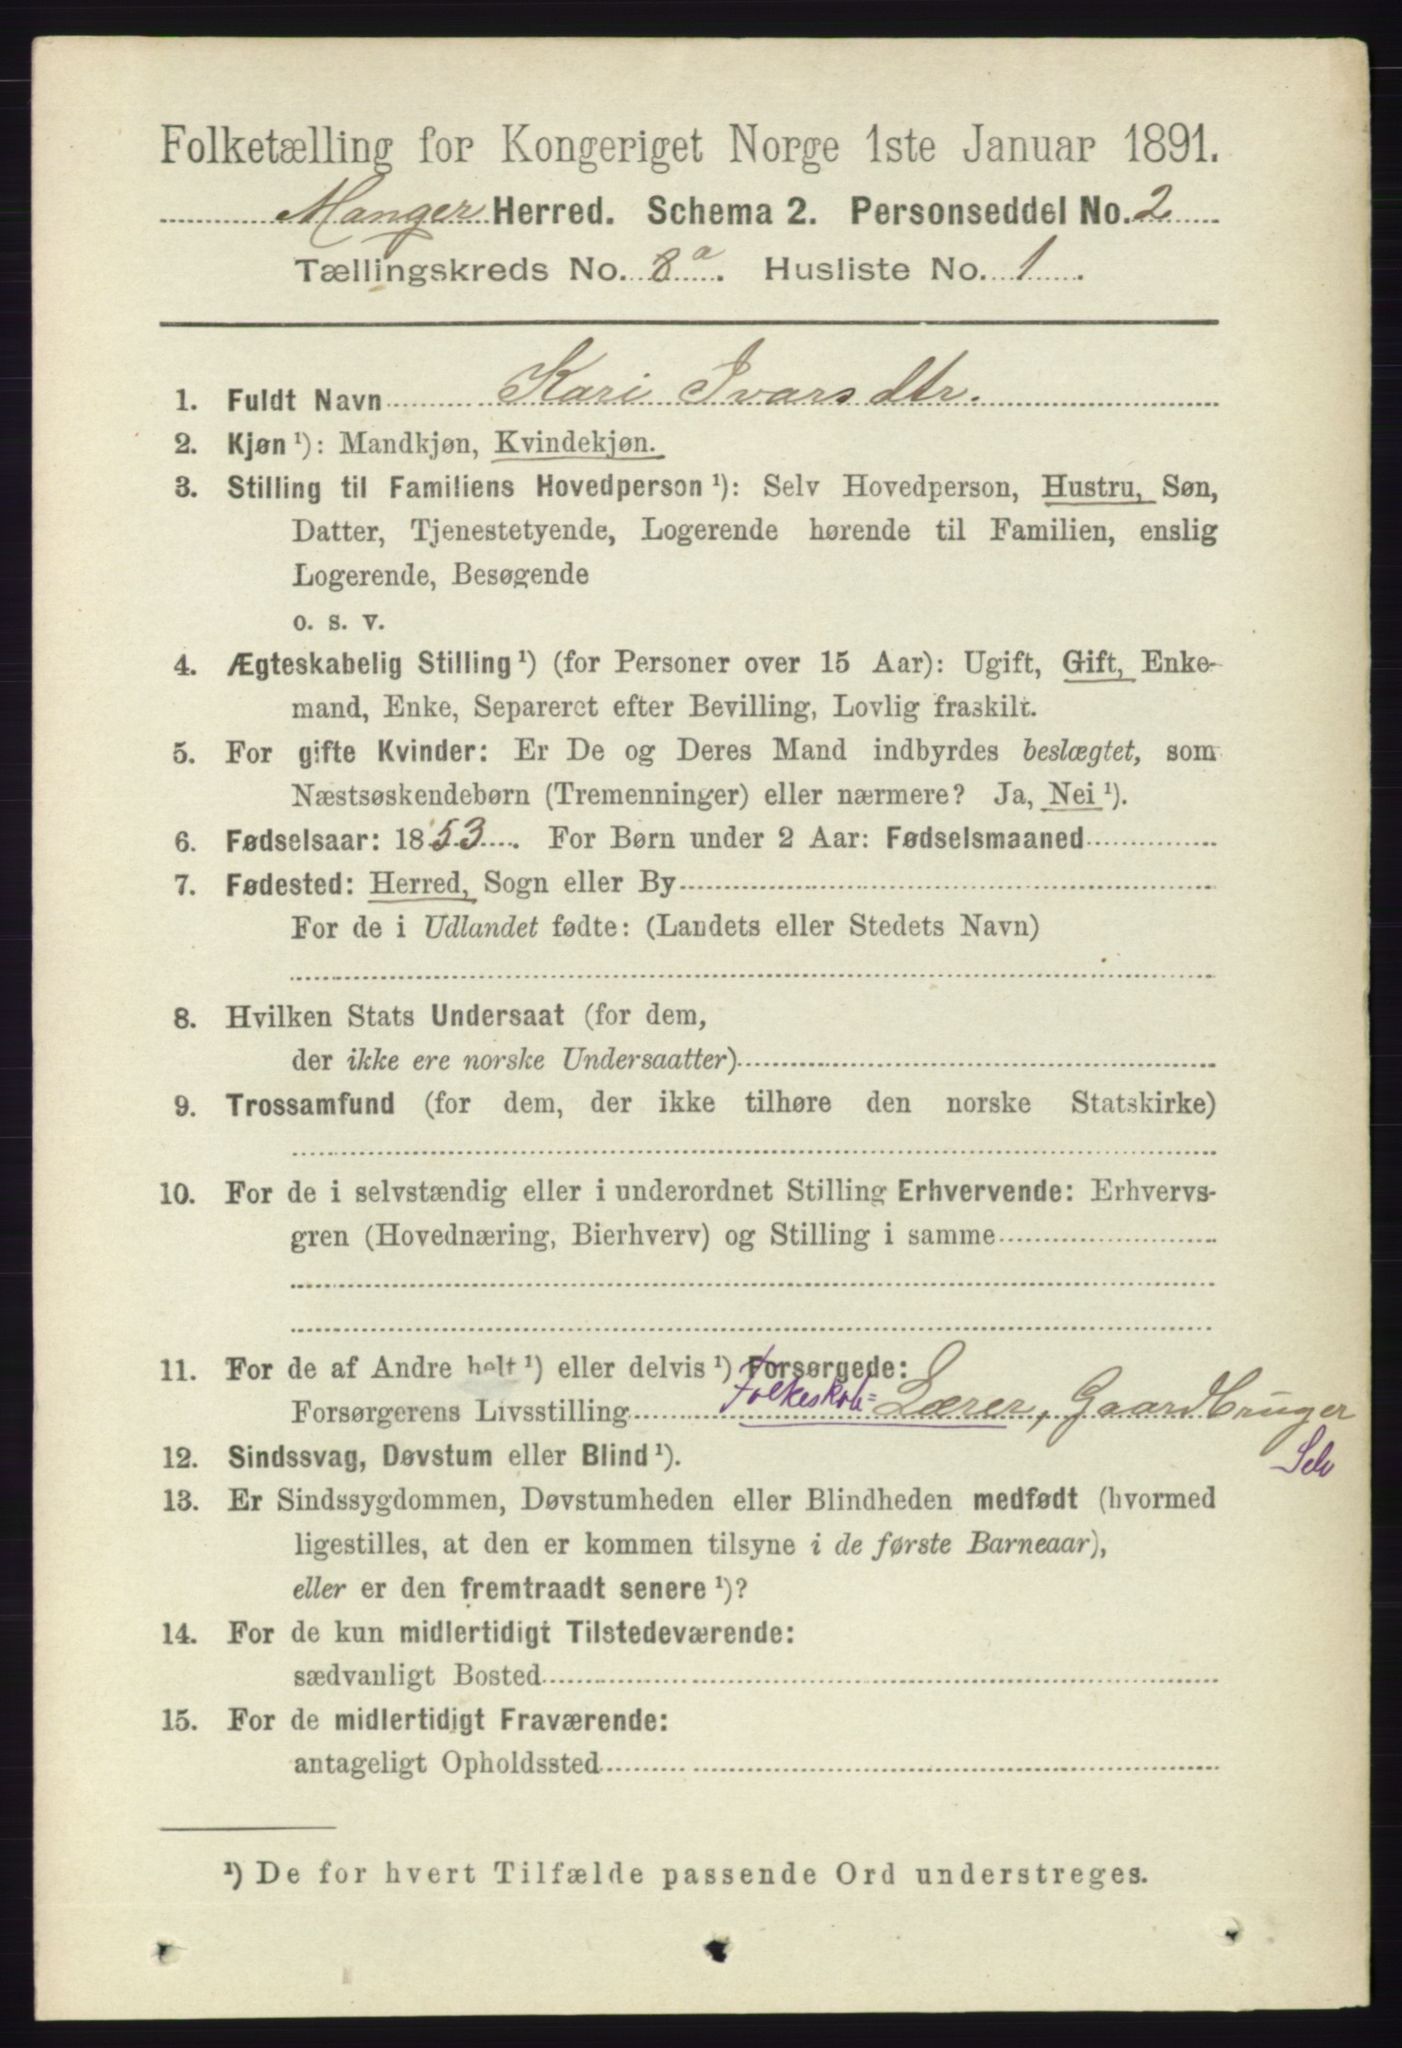 Folketælling for Kongeriget Norge 1ste Januar 1891.
Manger Herred. Schema 2. Personseddel No. 2
Tællingskreds No. 8a. Husliste No. 1.
1. Fuldt Navn Kari Ivarsdtr.
2. Kjøn ¹): Mandkjøn, Kvindekjøn.
3. Stilling til Familiens Hovedperson ¹): Selv Hovedperson, Hustru, Søn,
Datter, Tjenestetyende, Logerende hørende til Familien, enslig
Logerende, Besøgende
o. s. v.
4. Ægteskabelig Stilling ¹) (for Personer over 15 Aar): Ugift, Gift, Enke-
mand, Enke, Separeret efter Bevilling, Lovlig fraskilt.
5. For gifte Kvinder: Er De og Deres Mand indbyrdes beslægtet, som
Næstsøskendebørn (Tremenninger) eller nærmere? Ja, Nei ¹).
6. Fødselsaar: 1853. For Børn under 2 Aar: Fødselsmaaned
7. Fødested: Herred, Sogn eller By
For de i Udlandet fødte: (Landets eller Stedets Navn)
8. Hvilken Stats Undersaat (for dem,
der ikke ere norske Undersaatter)
9. Trossamfund (for dem, der ikke tilhøre den norske Statskirke)
10. For de i selvstændig eller i underordnet Stilling Erhvervende: Erhvervs-
gren (Hovednæring, Bierhverv) og Stilling i samme
11. For de af Andre helt ¹) eller delvis ¹) Forsørgede:
Forsørgerens Livsstilling Folkeskole= Lærer, Gaardbruger
Selv
12. Sindssvag, Døvstum eller Blind ¹).
13. Er Sindssygdommen, Døvstumheden eller Blindheden medfødt (hvormed
ligestilles, at den er kommen tilsyne i de første Barneaar),
eller er den fremtraadt senere ¹)?
14. For de kun midlertidigt Tilstedeværende:
sædvanligt Bosted
15. For de midlertidigt Fraværende:
antageligt Opholdssted
¹) De for hvert Tilfælde passende Ord understreges.